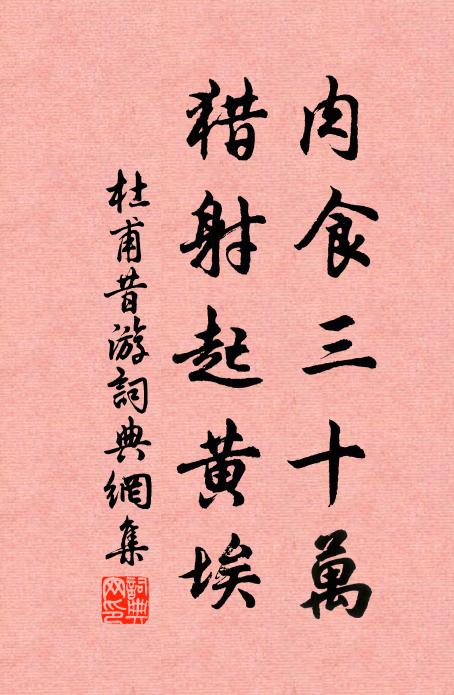 肉食三十萬
猎射起黄埃
杜甫昔游詞典網集
詞典网印